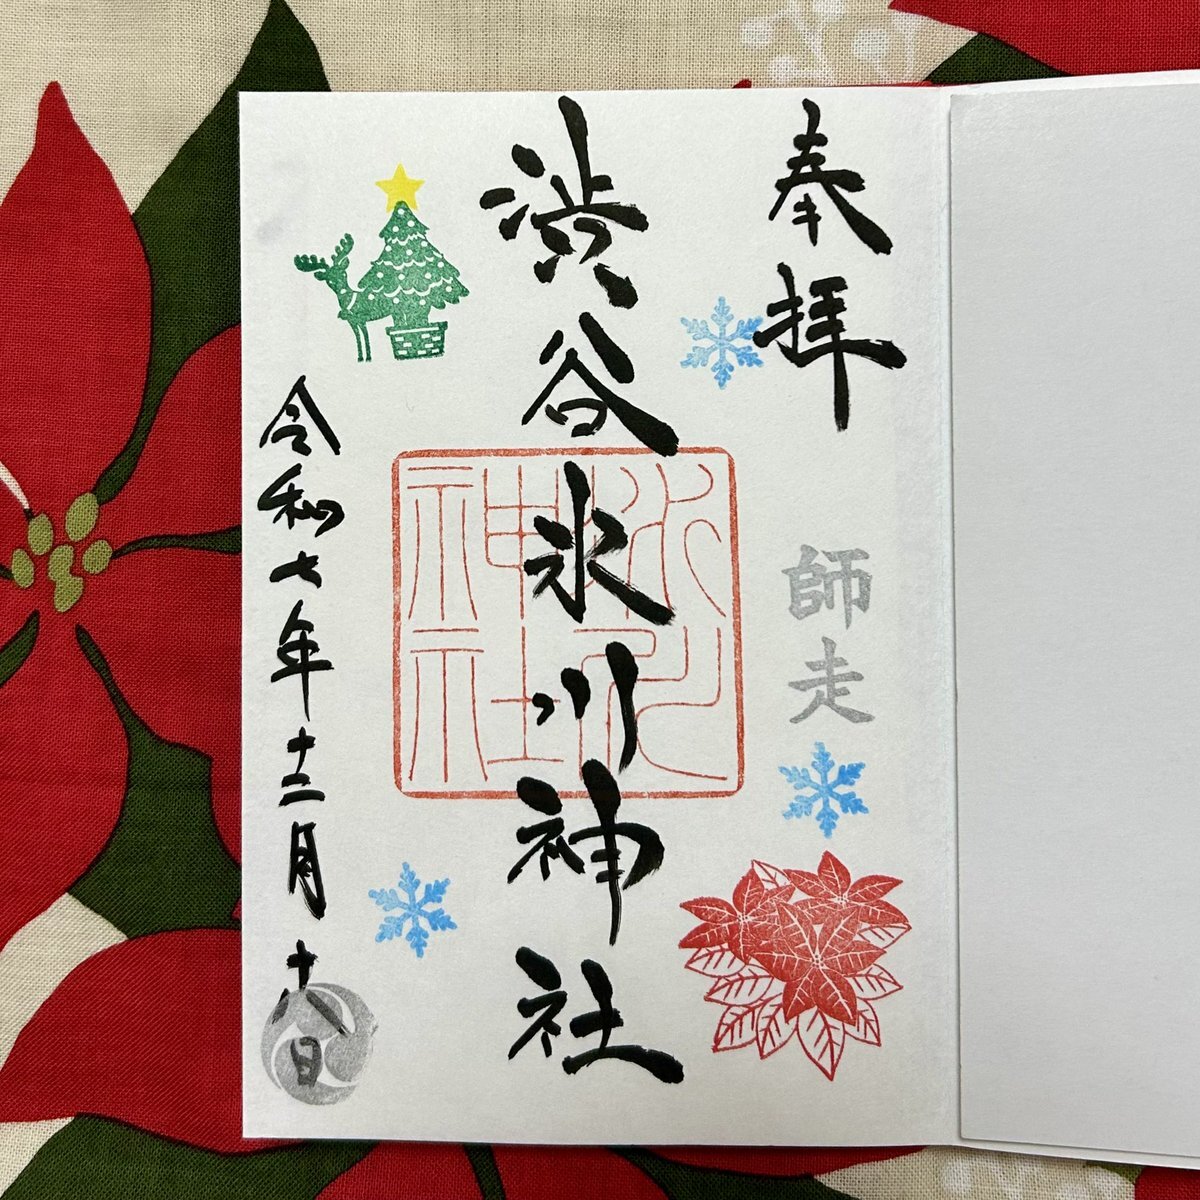 奉拝
師走
渋谷氷川神社
氷川
神社
令和七年十二月十八日